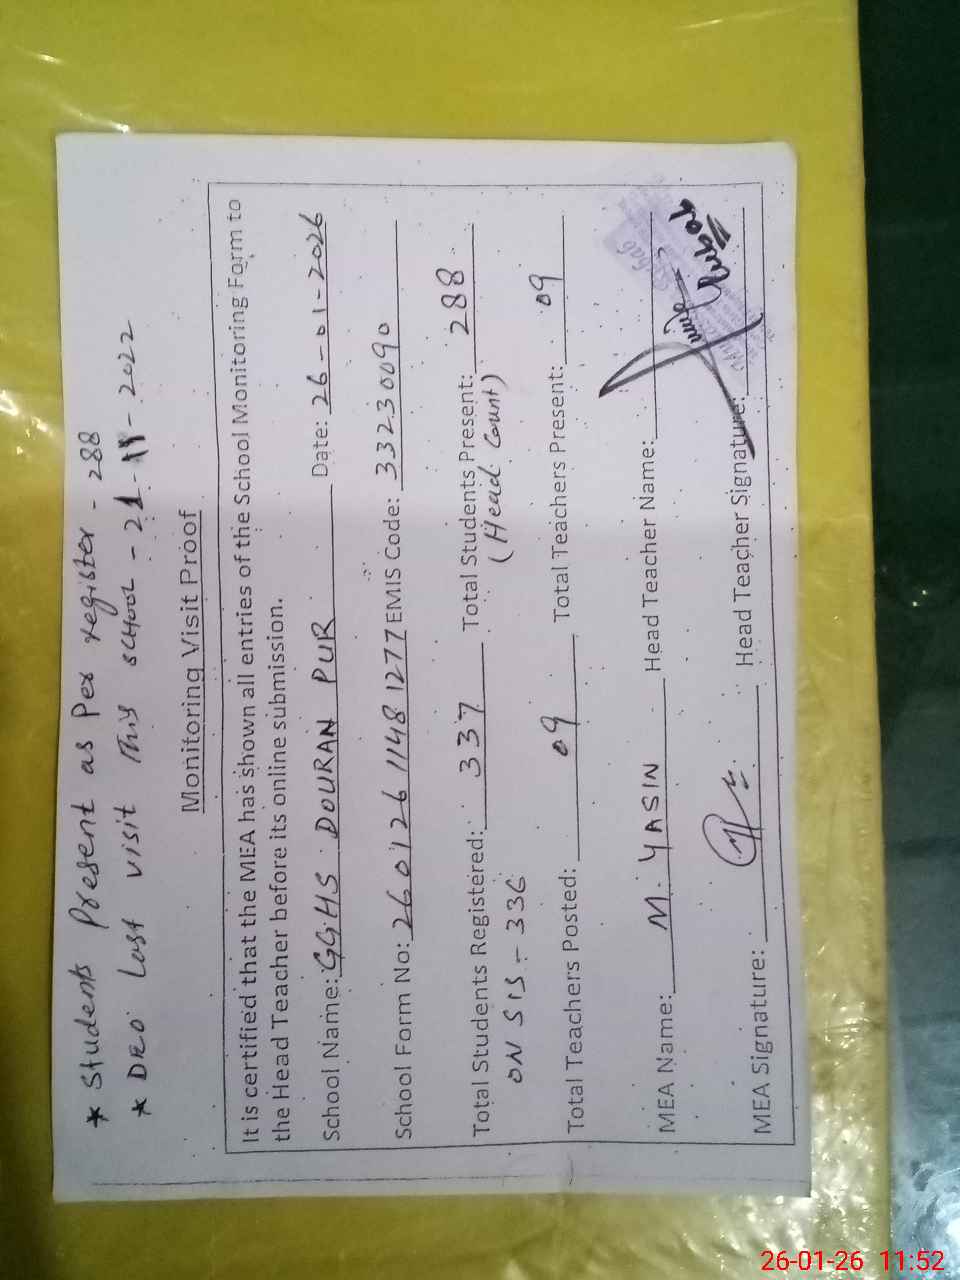 * Students Present as Per register - 288
* DEO Last visit This school - 21-11-2022
Monitoring Visit Proof
It is certified that the MEA has shown all entries of the School Monitoring Form to
the Head Teacher before its online submission.
School Name: GGHS DOURAN PUR Date: 26-01-2026
School Form No: 26012611481277 EMIS Code: 33230090
Total Students Registered: 337 Total Students Present: 288
ON SIS - 336 (Head Count)
Total Teachers Posted: 09 Total Teachers Present: 09
MEA Name: M. YASIN Head Teacher Name:
MEA Signature: Head Teacher Signature:
26-01-26 11:52